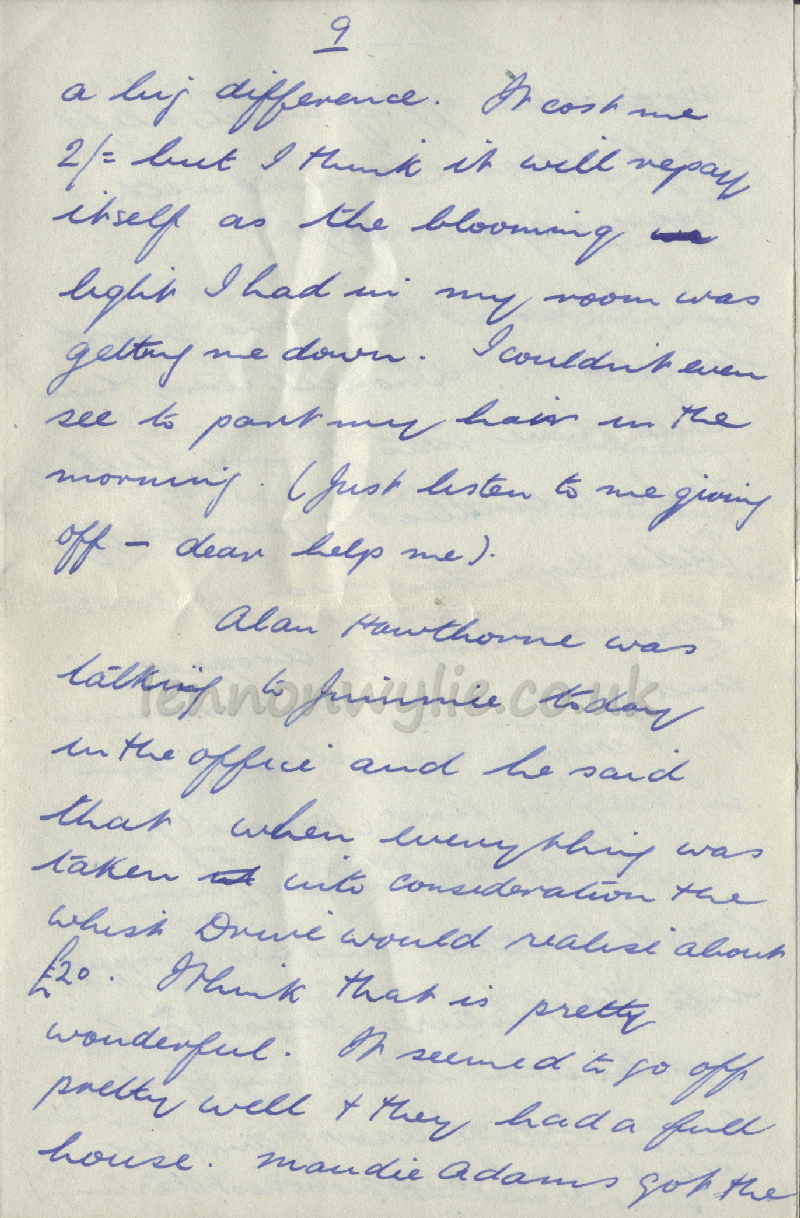 9
a big difference. It cost me
2/= but I think it will repay
itself as the blooming
light I had in my room was
getting me down. I couldn't even
see to part my hair in the
morning. (Just listen to me giving
off - dear help me).
Alan Hawthorne was
talking to Jimmie today
lennonwylie.co.uk
in the office and he said
that when everything was
taken into consideration the
whist Drive would realise about
£20. I think that is pretty
wonderful. It seemed to go off
pretty well + they had a full
house. Maudie Adams got the